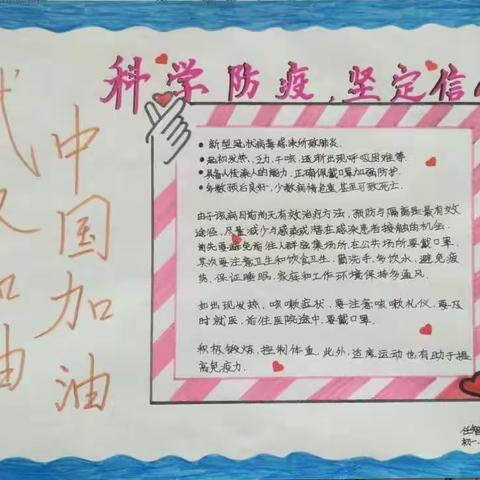 科学防疫，坚定信
武汉加油
中国加油
• 新型冠状病毒感染所致肺炎.
• 起初发热、乏力、干咳、逐渐出现呼吸困难等.
• 具备人传染人的能力，正确佩戴口罩加强防护.
• 多数预后良好，少数病情危重甚至可致死亡.
由于该病目前尚无有效治疗方法，预防与隔离是最有效
途径，尽量减少与感染或潜在感染患者接触的机会.
首先要避免前往人群密集场所，在公共场所要戴口罩，
其次要注意卫生和饮食卫生，勤洗手、多饮水，避免疲
劳、保证睡眠，家庭和工作环境保持多通风.
如出现发热、咳嗽症状，要注意咳嗽礼仪，要及
时就医，前往医院途中，要戴口罩.
积极锻炼，控制体重，此外，适度运动也有助于提
高免疫力.
初一